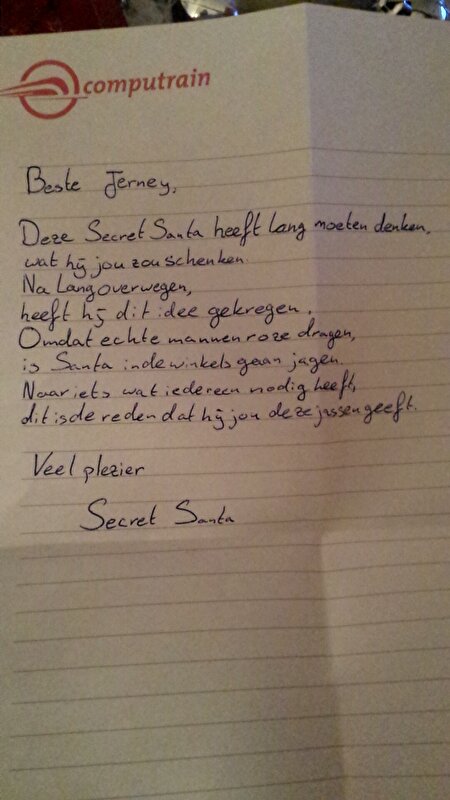 computrain
Beste Jerney,
Deze Secret Santa heeft lang moeten denken,
wat hij jou zou schenken.
Na lang overwegen,
heeft hij dit idee gekregen.
Omdat echte mannen roze dragen,
is Santa in de winkels gaan jagen.
Naar iets wat iedereen nodig heeft,
dit is de reden dat hij jou deze jassen geeft.
Veel plezier
Secret Santa